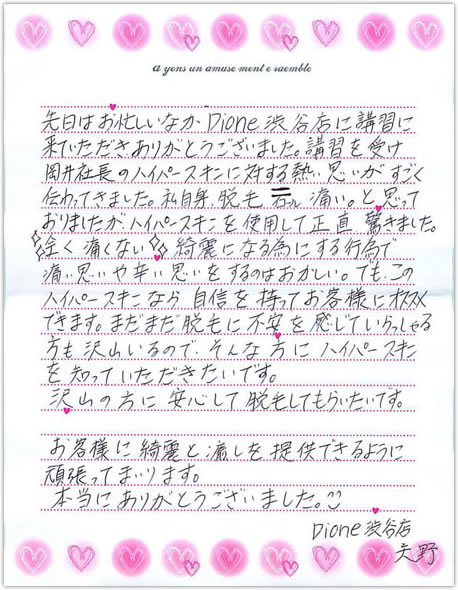 a yons un amuse ment e raemble
先日はお忙しいなか Dione 渋谷店に講習に
来ていただきありがとうございました。講習を受け
岡井社長のハイパースキンに対する熱い思いがすごく
伝わってきました。私自身、脱毛 = 痛い。と思って
おりましたがハイパースキンを使用して正直 驚きました。
全く痛くない 綺麗になる為にする行為で
痛い思いや辛い思いをするのはおかしい。でも、この
ハイパースキンなら 自信を持ってお客様にオススメ
できます。まだまだ脱毛に不安を感じていらっしゃる
方も沢山いるので、そんな方に ハイパースキン
を知っていただきたいです。
沢山の方に 安心して脱毛してもらいたいです。
お客様に綺麗と癒しを提供できるように
頑張ってまいります。
本当にありがとうございました。
Dione 渋谷店
矢野